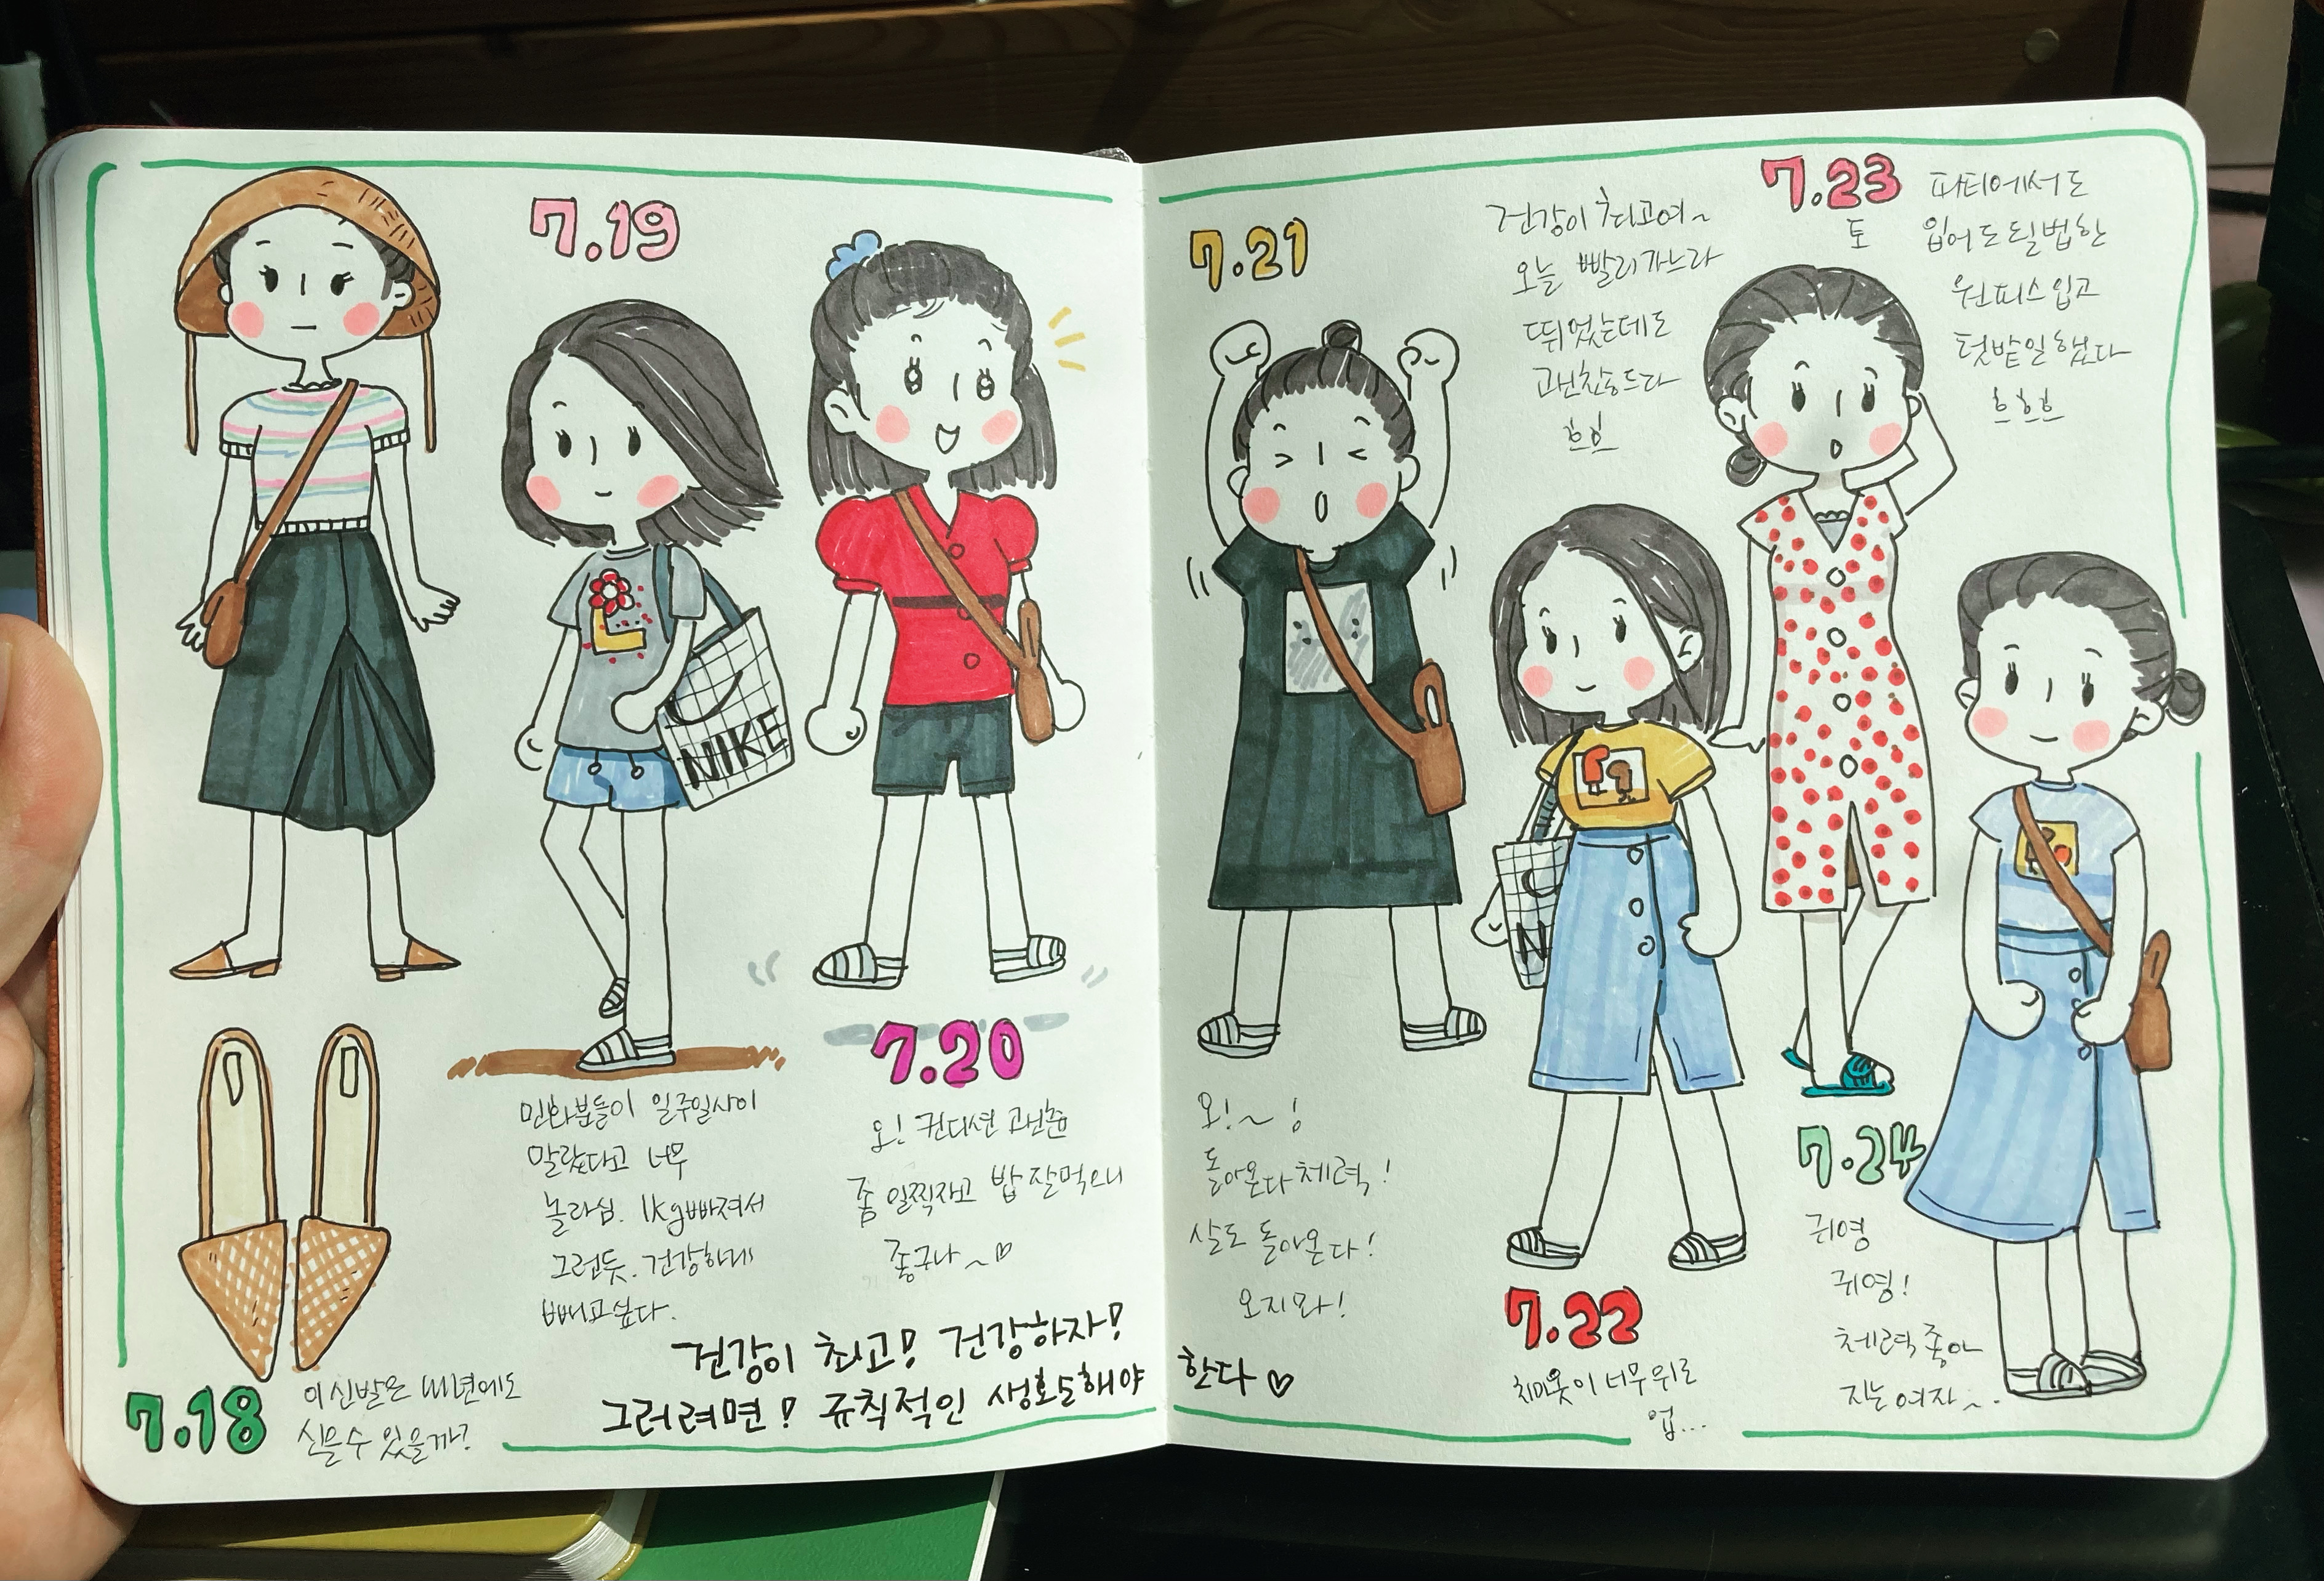 7.18
이 신발은 내년에도
신을수 있을까?
7.19
NIKE
민화분들이 일주일사이
말랐다고 너무
놀라심. 1kg빠져서
그런듯. 건강하게
빼고싶다.
7.20
오! 컨디션 괜찮
좀 일찍자고 밥 잘먹으니
좋구나~♡
건강이 최고! 건강하자!
그러려면! 규칙적인 생활해야
한다♡
7.21
건강이 최고여~
오늘 빨리가느라
뛰었는데도
괜찮드라
흐흐
오!~!
돌아온다 체력!
살도 돌아온다!
오지마!
7.22
N
치마옷이 너무위로
업...
7.23
토
파티에서도
입어도 될법한
원피스 입고
텃밭일했다
흐흐흐
7.24
귀영
귀영!
체력 좋아
지는 여자~.